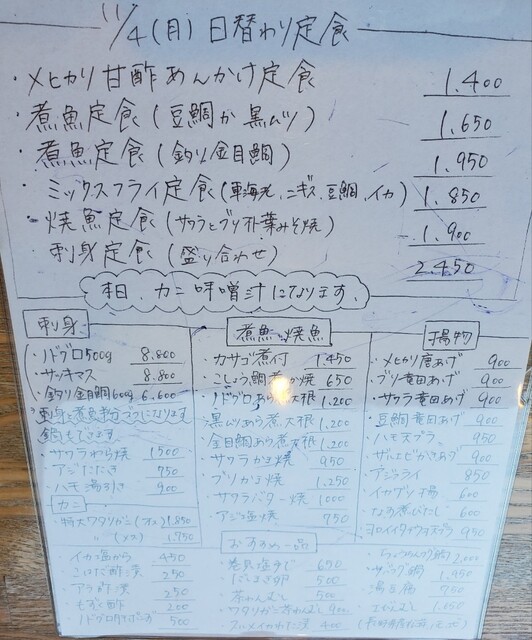 11/4(月)日替わり定食
・メヒカリ甘酢あんかけ定食 1.400
・煮魚定食(豆鯛か黒ムツ) 1.650
・煮魚定食(釣り金目鯛) 1.950
・ミックスフライ定食(車海老、ニギス、豆鯛、イカ) 1.850
・焼魚定食(サワラとブリ朴葉みそ焼) 1.900
・刺身定食(盛り合わせ) 2.450
本日、カニ味噌汁になります、
刺身
・ノドグロ500g 8.800
・サッキマス 8.800
・釣り金目鯛600g 6.600
刺身と煮魚半分づつになります
・サワラわら焼 1500
・アジたたき 750
・ハモ湯引き 900
カニ
・特大ワタリガニ(オス)1.850
(メス)1.750
・イカ塩から 450
・こはだ酢〆 250
・アラ酢〆 250
・もずく酢 200
500
煮魚・焼魚
・カサゴ煮付 1.450
・こしょう鯛煮か焼 650
・ノドグロあら煮大根 1.200
・黒ムツあら煮大根 1.200
・金目鯛あら煮大根 1.200
・サワラかま焼 950
・ブリかま焼 1.250
・サワラバター焼 1000
・アジ塩焼 750
おすすめ一品
650
500
・茶わんむし 500
・ワタリガニ茶わんむし 900
400
揚物
・メヒカリ唐あげ 900
・ブリ竜田あげ 900
・サワラ竜田あげ 900
・豆鯛竜田あげ 900
・ハモ天プラ 950
・ザエビかきあげ 900
・アジフライ 850
・イカゲソ揚 600
・なす煮びたし 600
950
2.000
1.950
・湯豆腐 750
1.050